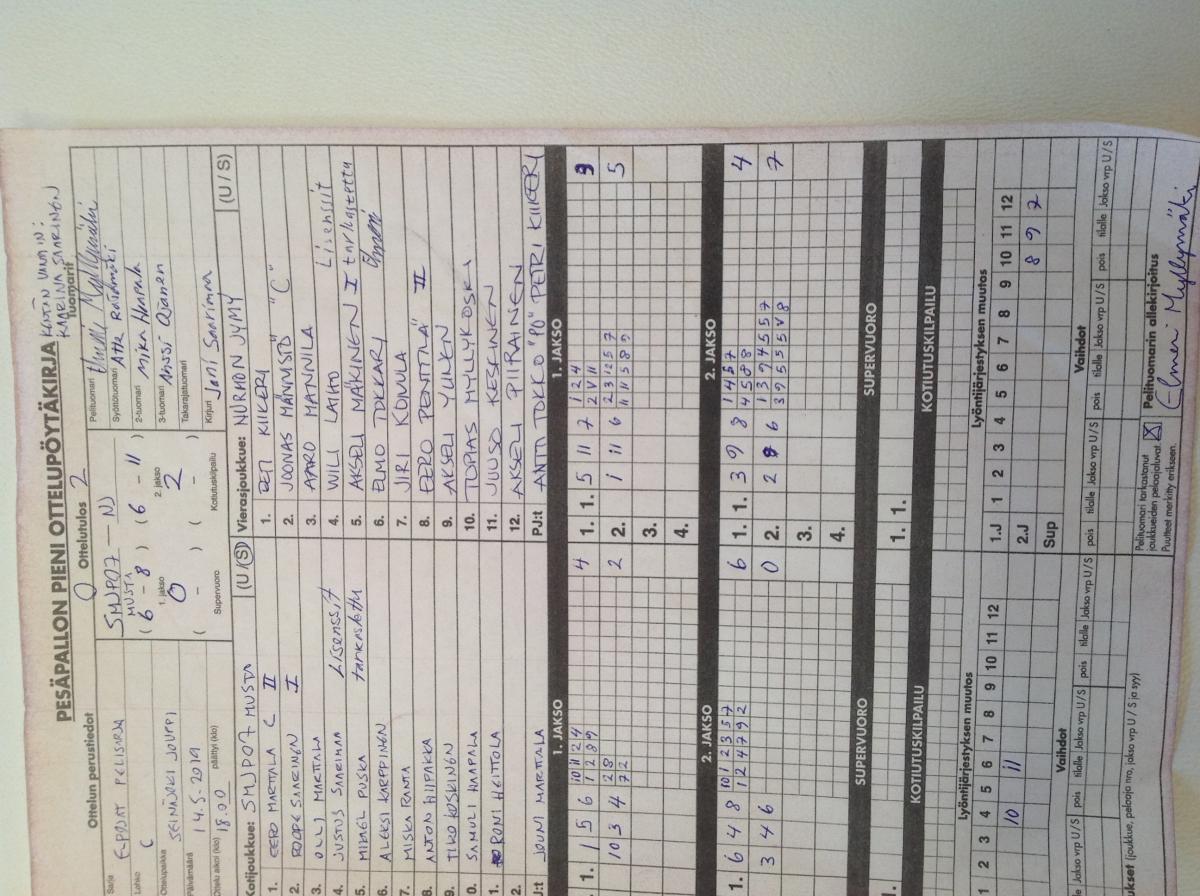 PESÄPALLON PIENI OTTELUPÖYTÄKIRJA
KAARINA SAARINEN
Ottelun perustiedot
Sarja
E-POJAT PELISARJA
Lohko
C
Ottelupaikka
SEINÄJOKI JOUPPI
Päivämäärä
14.5.2019
Ottelu alkoi (klo)
18.00
päättyi (klo)
Ottelutulos
0 2
SMJPO7 — NJ
MUSTA
(6 - 8) (6 - 11)
1. jakso 2. jakso
0 2
( - ) ( - )
Supervuoro Kotiutuskilpailu
Tuomarit
Pelituomari
Syöttötuomari
2-tuomari
Mika
3-tuomari
Anssi
Takarajatuomari
Kirjuri
Jani Saarimaa
Kotijoukkue: SMJPO7 MUSTA (U/S)
1. EERO MARTTALA C II
2. ROOPE SAARINEN I
3. OLLI MARTTALA
4. JUSTUS SAARIMAA Lisenssit
5. MIKAEL PUSKA tarkastettu
6. ALEKSI KARPPINEN
7. MISKA RANTA
8. ANTON HIIPAKKA
9. TIKO KOSKINEN
0. SAMULI HAAPALA
1. RONI HEITTOLA
2.
J:t JOUNI MARTTALA
Vierasjoukkue: NURMON JYMY (U/S)
1. EETI KIIKERI
2. JOONAS MÄNNISTÖ "C"
3. AARO MANNILA
4. WILI LATHO Lisenssit
5. AKSELI MÄKINEN I tarkastettu
6. ELMO TOKKARI
7. JIRI KONULA
8. EERO PENTTILÄ II
9. AKSELI YLINEN
10. TOPIAS MYLLYKOSKI
11. JUUSO KESKINEN
12. AKSELI PIIRAINEN
PJ:t ANTTI TOKKO "PO" PETRI KIIKERI
1. JAKSO 1. JAKSO
1. 1. 5 6 10 11 2 4 4
1 2 8 9
10 3 4 2 8 2
7 2
1. 1. 5 11 7 1 2 4 9
2 V 11
2. 1 11 6 2 3 12 5 7 5
11 11 5 8 9
3.
4.
2. JAKSO 2. JAKSO
1. 6 4 8 10 1 2 3 5 7 6
1 2 4 7 9 2
3 4 6 0
1. 1. 3 9 8 1 4 5 7 4
4 5 8 8
2. 2 8 6 1 3 9 4 5 5 7 7
3 9 5 5 5 V 8
3.
4.
SUPERVUORO SUPERVUORO
1. 1. 1.
KOTIUTUSKILPAILU KOTIUTUSKILPAILU
Lyöntijärjestyksen muutos Lyöntijärjestyksen muutos
2 3 4 5 6 7 8 9 10 11 12
10 11
1.J 1 2 3 4 5 6 7 8 9 10 11 12
2.J 8 9 7
Sup
Vaihdot Vaihdot
tilalle Jakso vrp U/S pois tilalle Jakso vrp U/S pois tilalle Jakso vrp U/S
pois tilalle Jakso vrp U/S pois tilalle Jakso vrp U/S pois tilalle Jakso vrp U/S
(joukkue, pelaaja nro, jakso vrp U/S ja syy)
Pelituomari tarkastanut
joukkueiden peloajaluvat ☒
Puutteet merkitty erikseen.
Pelituomarin allekirjoitus
Elmeri Myllymäki